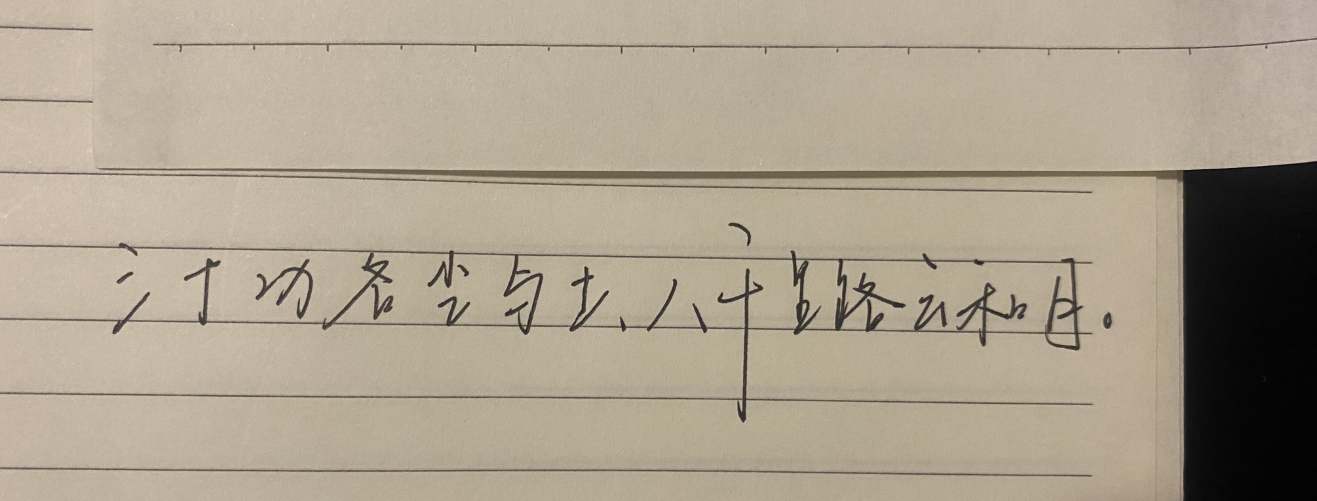 三十功名尘与土,八千里路云和月。